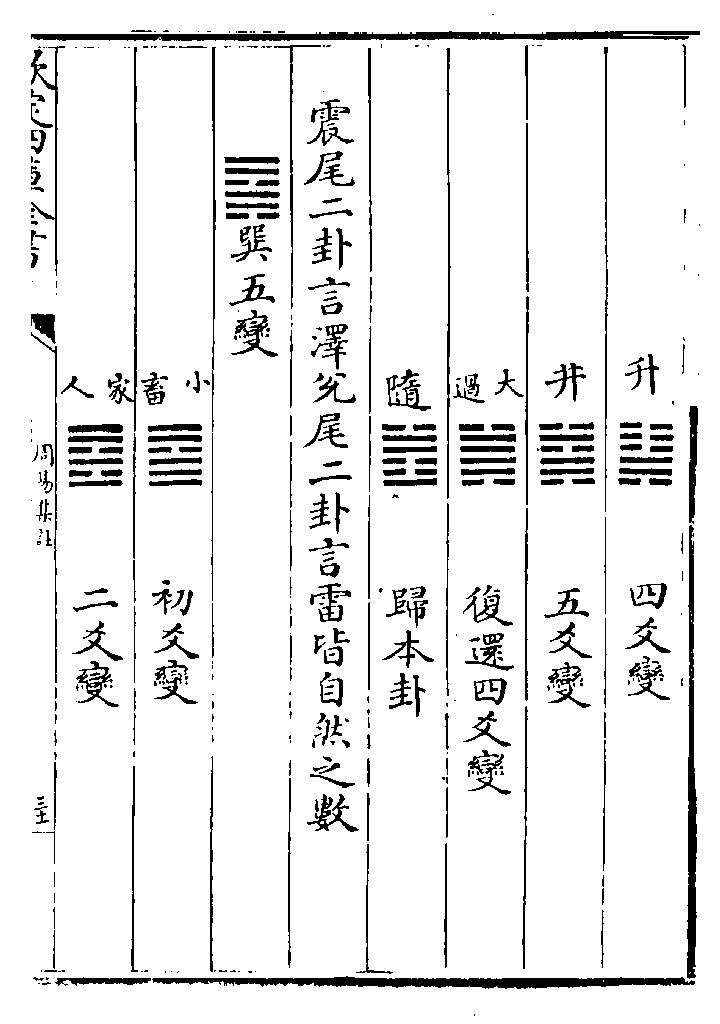 升 四爻變
井 五爻變
大過 復還四爻變
隨 歸本卦
震尾二卦言澤兌尾二卦言雷皆自然之數
巽五變
小畜 初爻變
家人 二爻變
欽定四庫全書
周易集註
三十